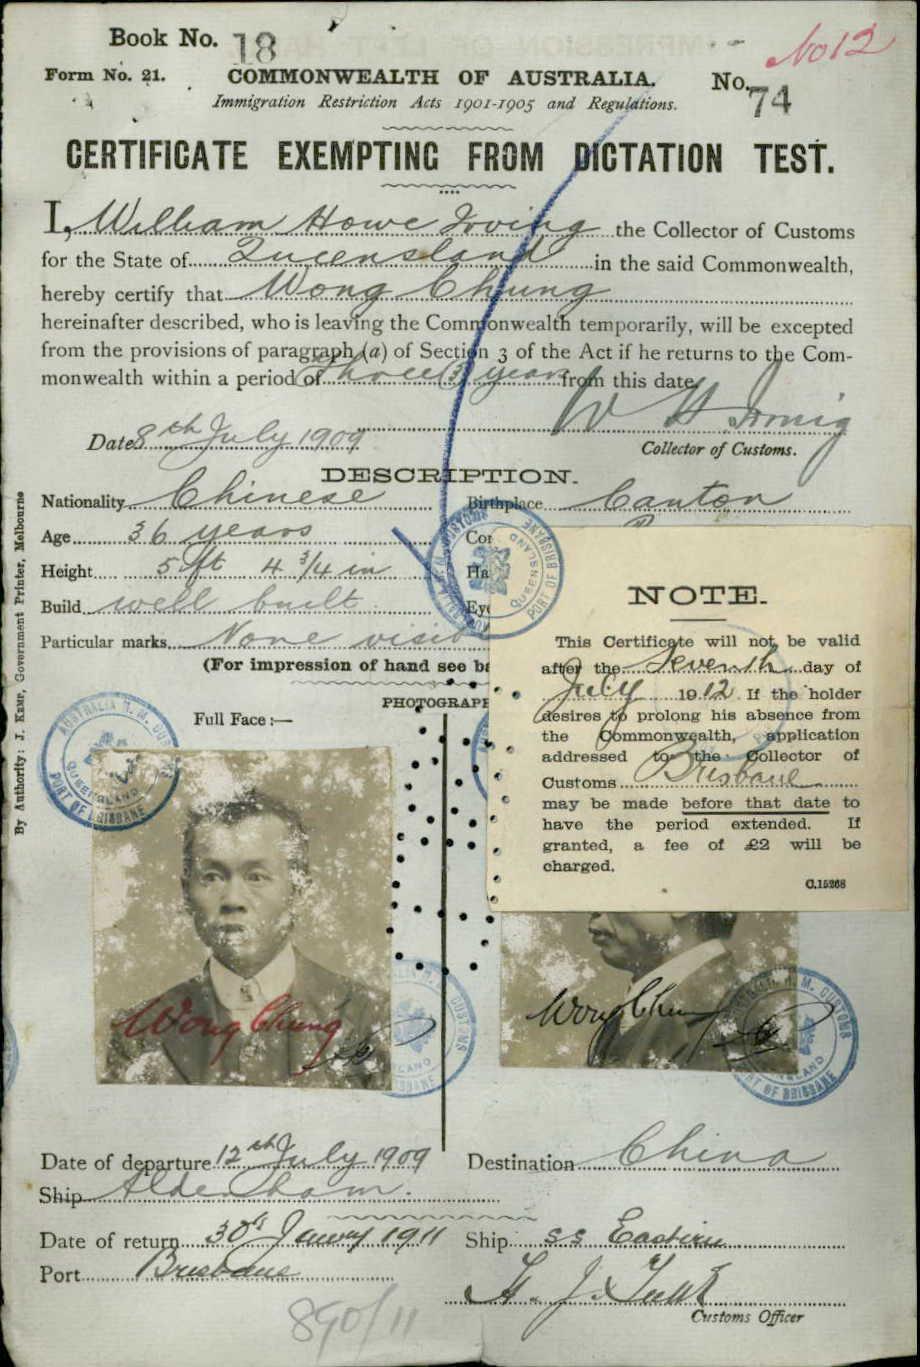 Book No. 18
No 12
Form No. 21.
COMMONWEALTH OF AUSTRALIA.
No. 74
Immigration Restriction Acts 1901-1905 and Regulations.
CERTIFICATE EXEMPTING FROM DICTATION TEST.
I, William Howe Irving the Collector of Customs
for the State of Queensland in the said Commonwealth,
hereby certify that Wong Chung
hereinafter described, who is leaving the Commonwealth temporarily, will be excepted
from the provisions of paragraph (a) of Section 3 of the Act if he returns to the Com-
monwealth within a period of Three (3) years from this date
W H Irving
Date 8th July 1909
Collector of Customs.
DESCRIPTION.
Nationality Chinese
Birthplace Canton
Age 36 years
Co
Height 5 ft 4 3/4 in
Ha
Build well built
Eye
Particular marks None visib
(For impression of hand see ba
PHOTOGRAPH
Full Face:—
NOTE.
This Certificate will not be valid
after the seventh day of
July 1912 If the holder
desires to prolong his absence from
the Commonwealth, application
addressed to the Collector of
Customs Brisbane
may be made before that date to
have the period extended. If
granted, a fee of £2 will be
charged.
C.15268
By Authority: J. Kemp, Government Printer, Melbourne
AUSTRALIA H. M. CUSTOMS
QUEENSLAND
PORT OF BRISBANE
Wong Chung
Wong Chung
Date of departure 12th July 1909
Destination China
Ship Aldenham.
Date of return 30th January 1911
Ship ss Eastern
Port Brisbane
Customs Officer
890/11